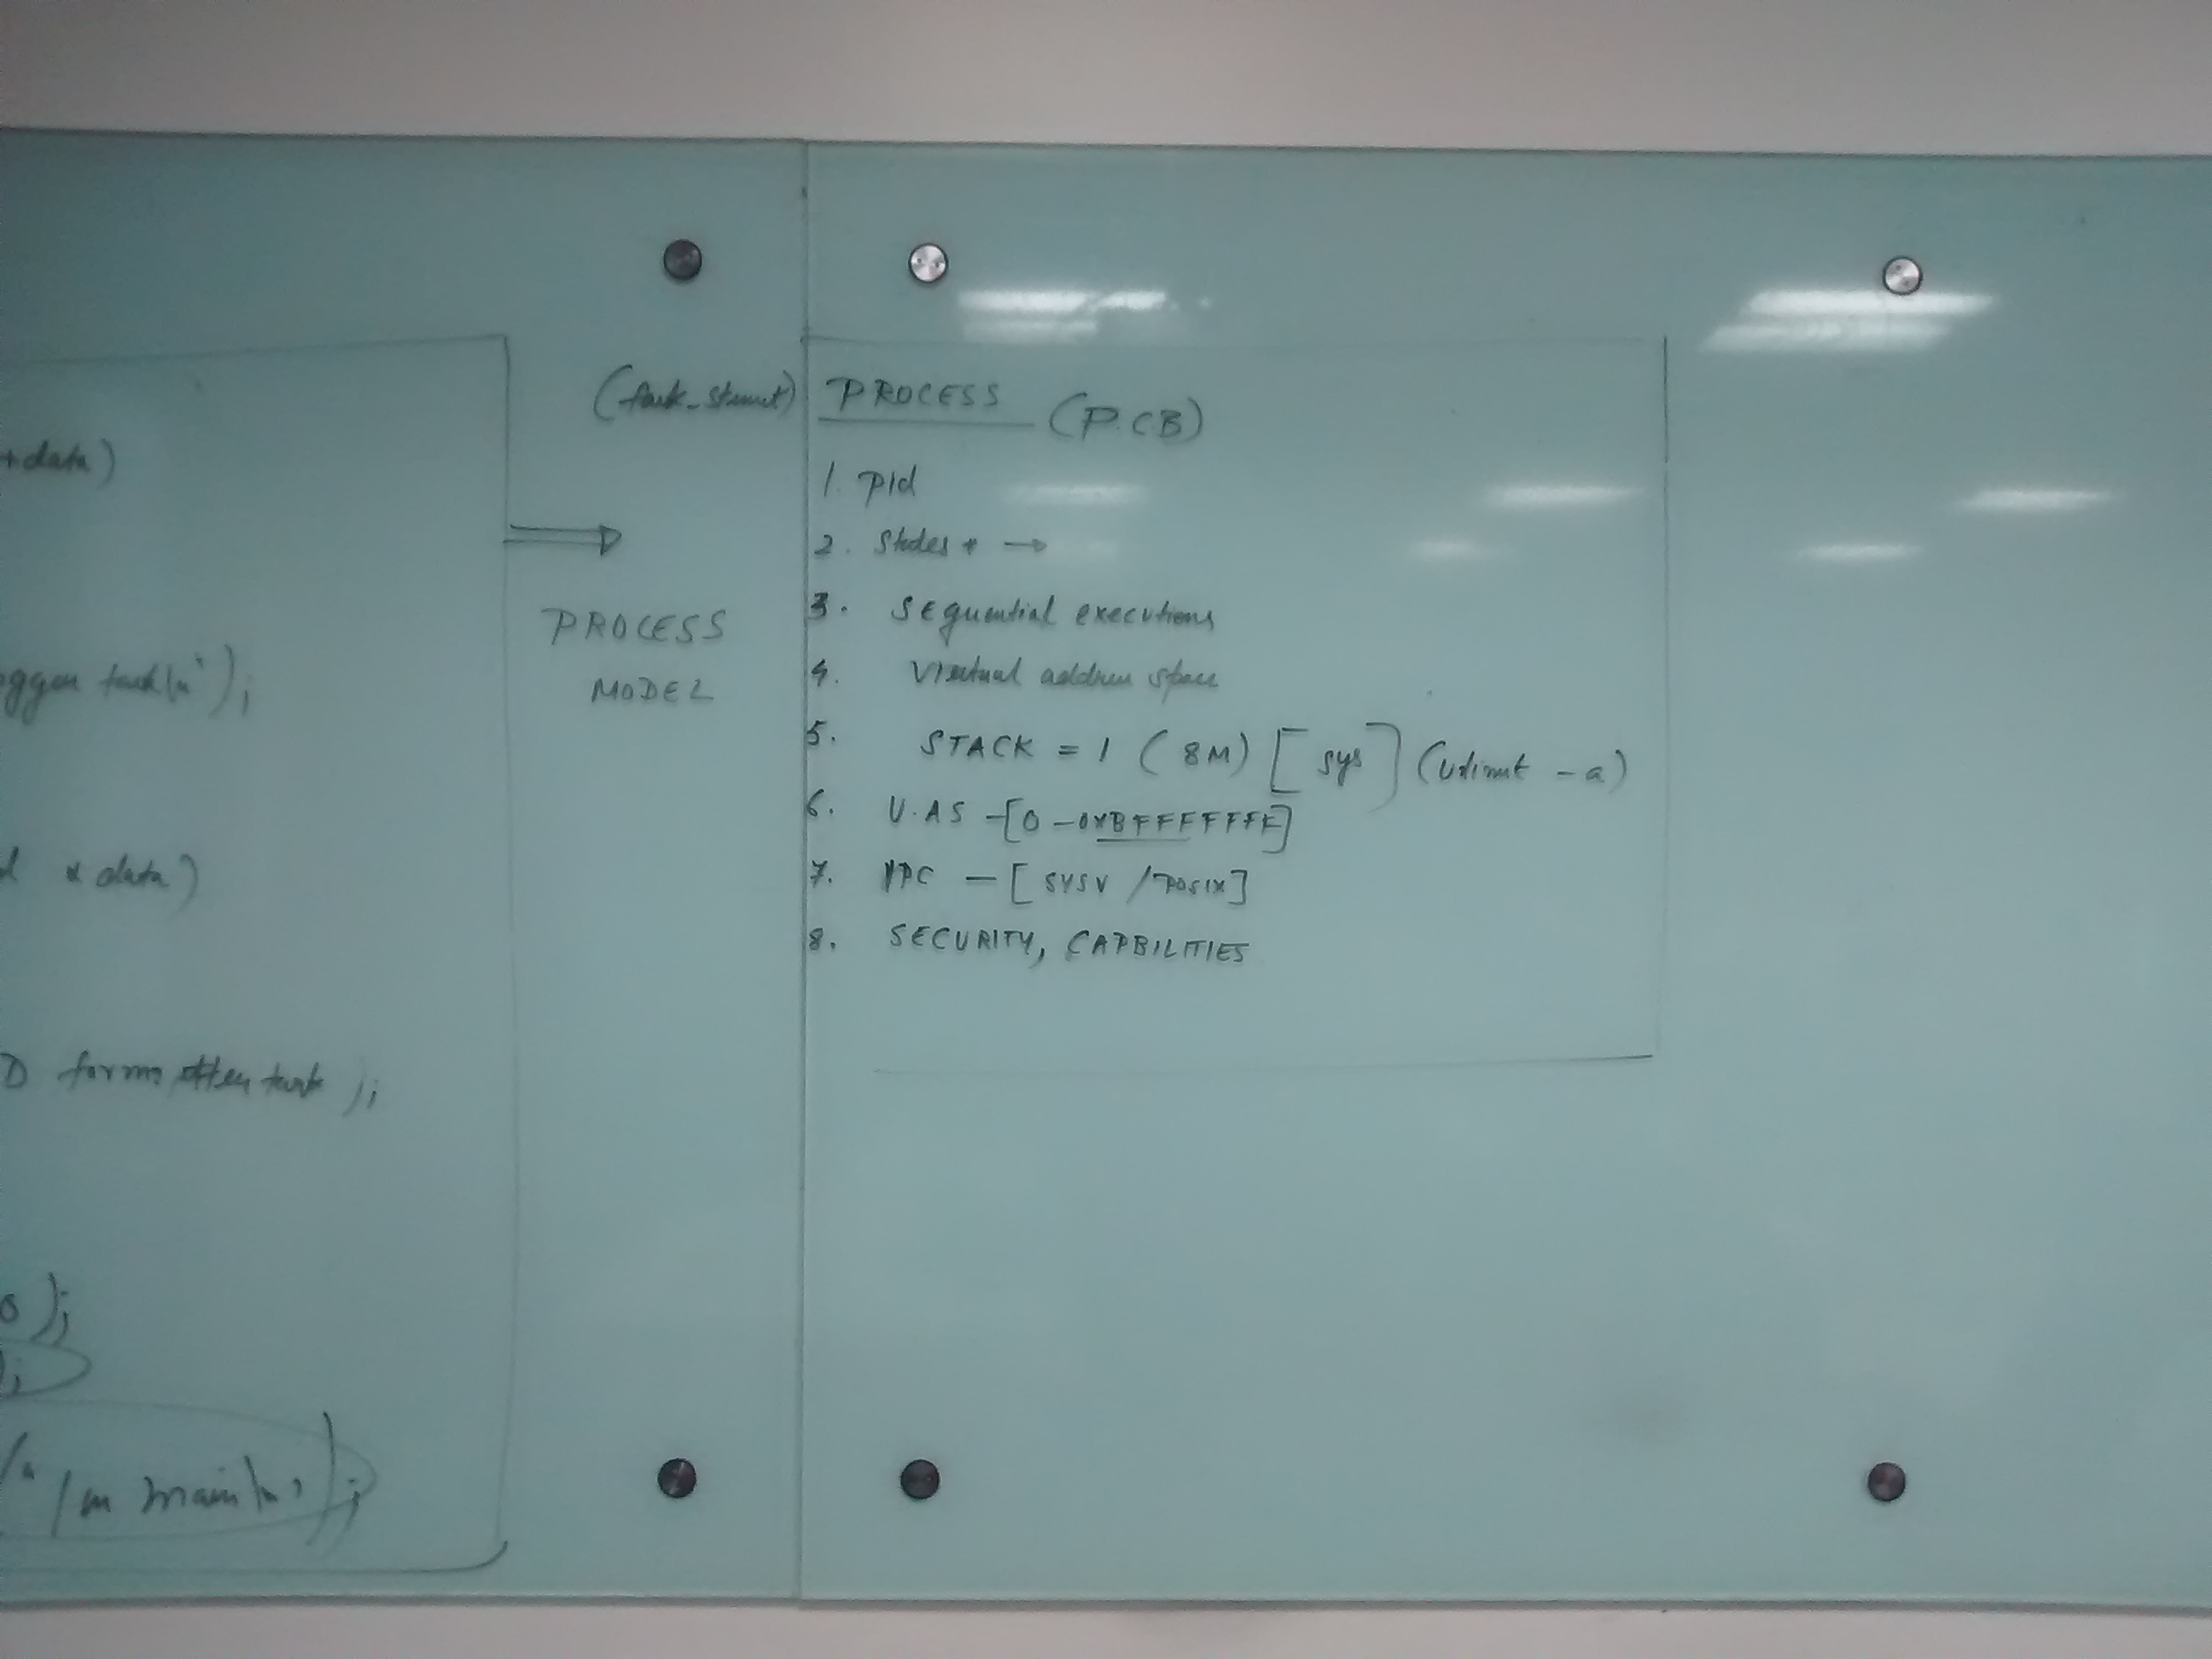 *data)
gger task\n");
d *data)
D formatter task );
o );
);
/m main\n");
PROCESS
MODEL
(task_struct) PROCESS (P.CB)
1. Pid
2. States * →
3. Sequential executions
4. Virtual address space
5. STACK = 1 (8M) [sys] (ulimit -a)
6. V.AS -[0-0XBFFFFFFF]
7. IPC - [SYSV /POSIX]
8. SECURITY, CAPBILITIES